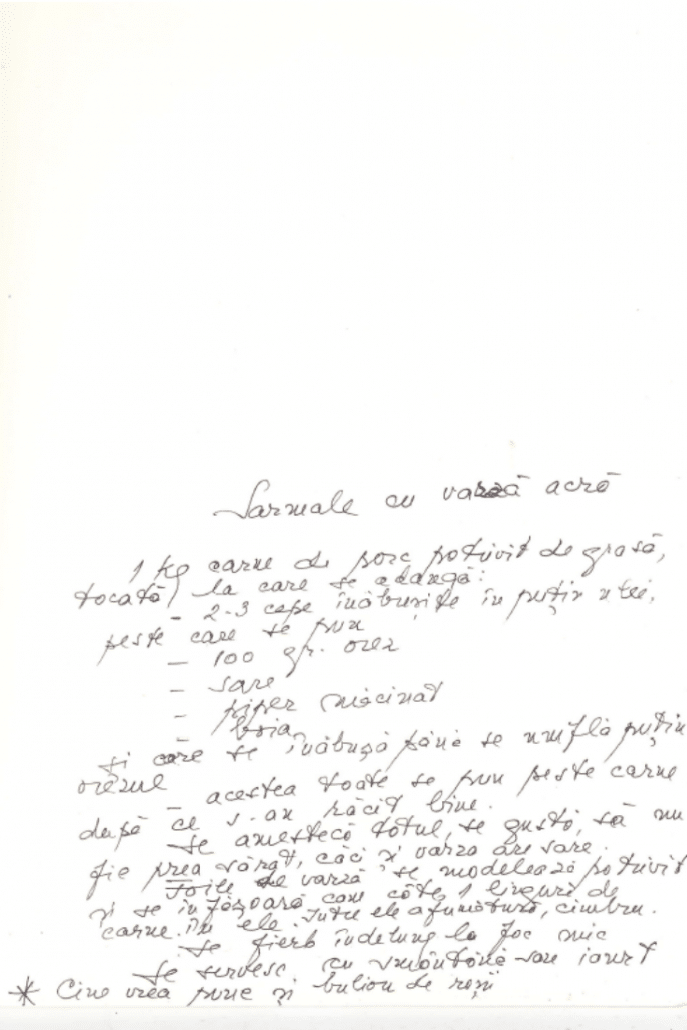 Sarmale cu varză acră
1 kg carne de porc potrivit de grasă,
tocată, la care se adaugă:
- 2-3 cepe înăbușite în puțin ulei,
peste care se pun
- 100 gr. orez
- sare
- piper măcinat
- boia
și care se înăbușă până se umflă puțin
orezul
- acestea toate se pun peste carne
după ce s-au răcit bine.
Se amestecă totul, se gustă, să nu
fie prea sărat, căci și varza are sare.
Foile de varză se modelează potrivit
și se înfășoară cam câte 1 lingură de
carne în ele. Între ele afumătură, cimbru.
Se fierb îndelung la foc mic
Se servesc cu smântână sau iaurt
* Cine vrea pune și bulion de roșii